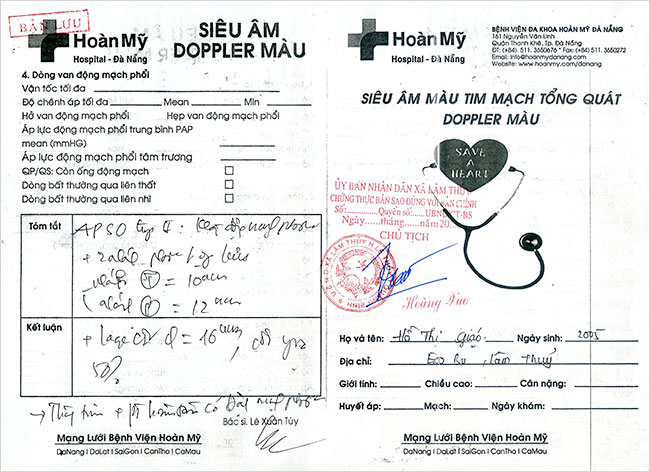 BẢN LƯU
Hoàn Mỹ
Hospital - Đà Nẵng
SIÊU ÂM
DOPPLER MÀU
4. Dòng van động mạch phổi
Vận tốc tối đa
Độ chênh áp tối đa Mean Min
Hở van động mạch phổi Hẹp van động mạch phổi
Áp lực động mạch phổi trung bình PAP
mean (mmHG)
Áp lực động mạch phổi tâm trương
QP/QS: Còn ống động mạch
Dòng bất thường qua liên thất
Dòng bất thường qua liên nhĩ
Tóm tắt
APSO typ II :
+ 2 nhánh
nhánh T = 10mm
nhánh P = 12 mm
Kết luận
= 16 mm,
50%
Bác sĩ. Lê Xuân Túy
Mạng Lưới Bệnh Viện Hoàn Mỹ
DaNang I DaLat I SaiGon I CanTho I CaMau
Hoàn Mỹ
Hospital - Đà Nẵng
BỆNH VIỆN ĐA KHOA HOÀN MỸ ĐÀ NẴNG
161 Nguyễn Văn Linh
Quận Thanh Khê, Tp. Đà Nẵng
ĐT: (+84) 511. 3650676 * Fax: (+84) 511. 3650272
Email: info@hoanmydanang.com
Website: www.hoanmy.com/danang
SIÊU ÂM MÀU TIM MẠCH TỔNG QUÁT
DOPPLER MÀU
SAVE
A
HEART
ỦY BAN NHÂN DÂN XÃ LÂM THỦY
CHỨNG THỰC BẢN SAO ĐÚNG VỚI BẢN CHÍNH
Số:............Quyển số:......UBND/CT-BS
Ngày......tháng......năm 20...
CHỦ TỊCH
Hoàng Vào
Họ và tên: Hồ Thị Giáo Ngày sinh: 2005
Địa chỉ: Eo Bu , Lâm Thuỷ
Giới tính: Chiều cao: Cân nặng:
Huyết áp: Mạch: Ngày khám:
Mạng Lưới Bệnh Viện Hoàn Mỹ
DaNang I DaLat I SaiGon I CanTho I CaMau